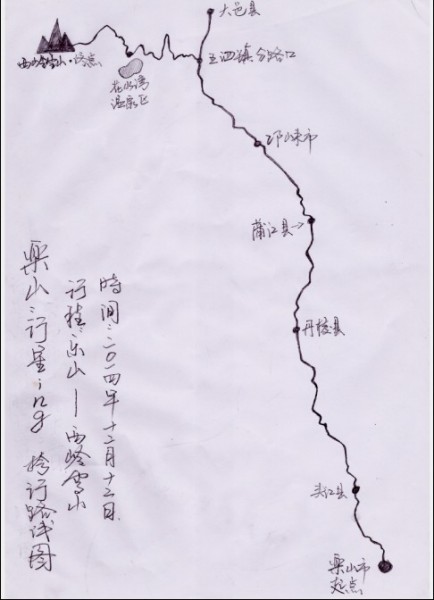 大邑县
西岭雪山·终点
王泗镇分路口
花水湾
温泉区
邛崃市
蒲江县→
丹棱县
夹江县
樂山市
起点
時间:二〇一四年十二月十二日
行程:乐山——西岭雪山
樂山:行星ing 骑行路线图